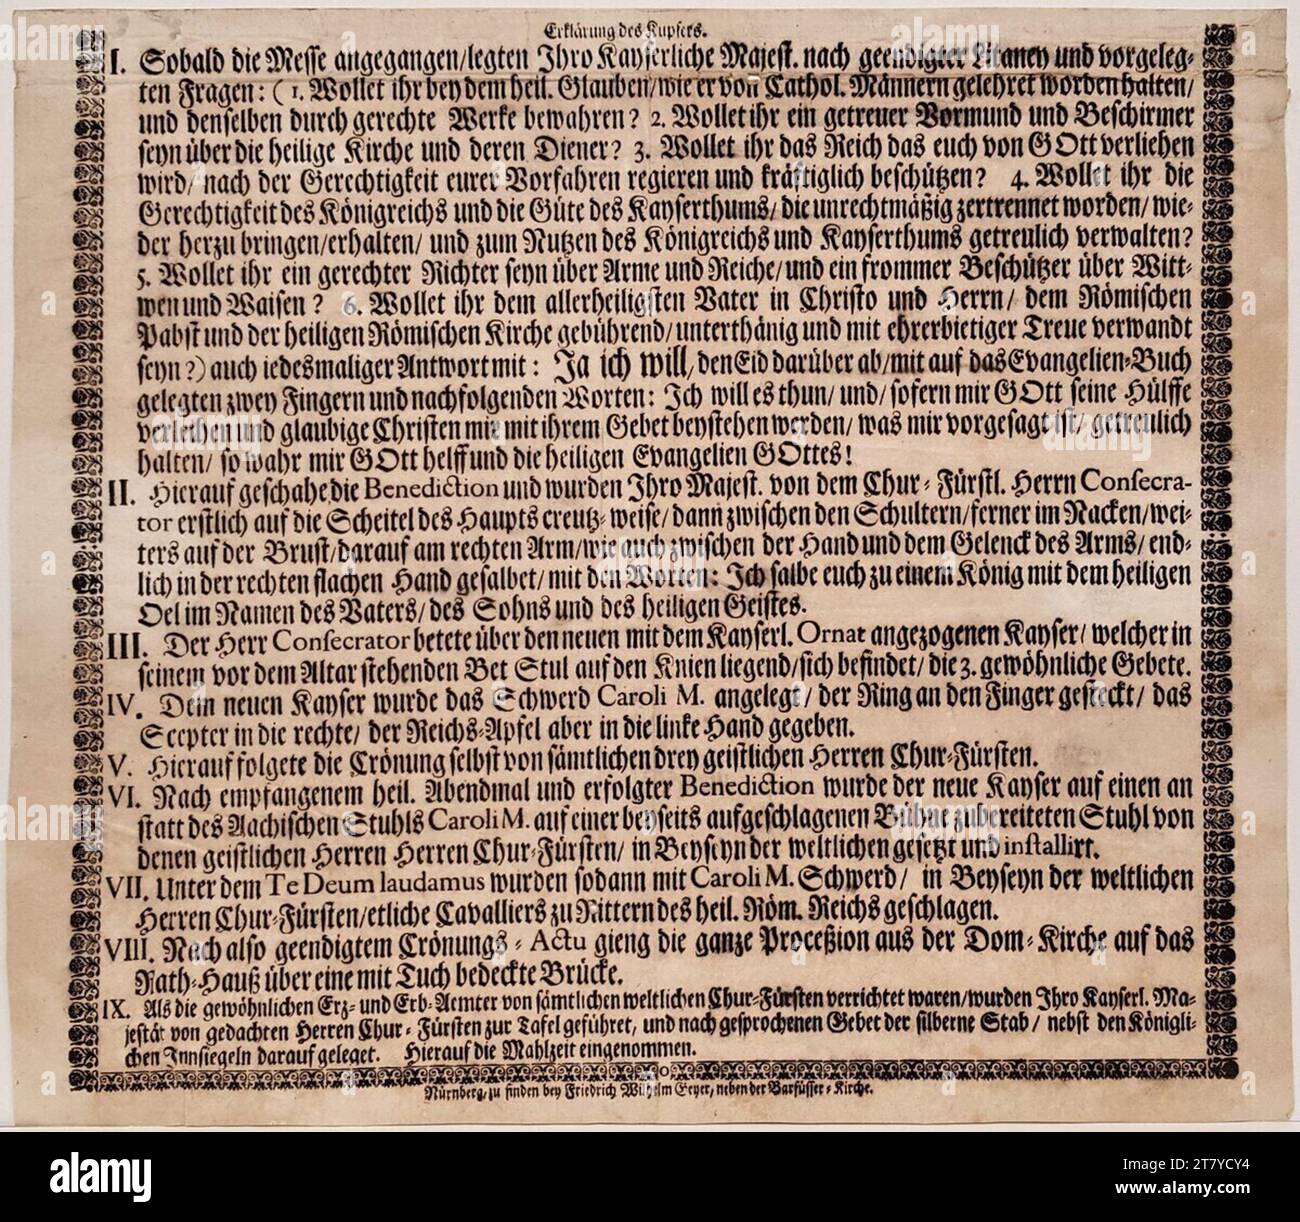 Erklärung des Kupfers.
I. Sobald die Messe angegangen/legten Ihro Kayserliche Majest. nach geendigter Litaney und vorgeleg-
ten Fragen: (1. Wollet ihr bey dem heil. Glauben/wie er von Cathol. Männern gelehret worden halten/
und denselben durch gerechte Werke bewahren? 2. Wollet ihr ein getreuer Vormund und Beschirmer
seyn über die heilige Kirche und deren Diener? 3. Wollet ihr das Reich das euch von GOtt verliehen
wird/ nach der Gerechtigkeit eurer Vorfahren regieren und kräftiglich beschützen? 4. Wollet ihr die
Gerechtigkeit des Königreichs und die Güte des Kayserthums/ die unrechtmäßig zertrennet worden/ wie-
der herzu bringen/erhalten/ und zum Nutzen des Königreichs und Kayserthums getreulich verwalten?
5. Wollet ihr ein gerechter Richter seyn über Arme und Reiche/und ein frommer Beschützer über Witt-
wen und Waisen? 6. Wollet ihr dem allerheiligsten Vater in Christo und Herrn/ dem Römischen
Pabst und der heiligen Römischen Kirche gebührend/unterthänig und mit ehrerbietiger Treue verwandt
seyn?) auch iedesmaliger Antwort mit: Ja ich will, den Eid darüber ab/mit auf das Evangelien-Buch
gelegten zwey Fingern und nachfolgenden Worten: Ich will es thun/ und/sofern mir GOtt seine Hülffe
verleihen und glaubige Christen mir mit ihrem Gebet beystehen werden/ was mir vorgesagt ist/ getreulich
halten/ so wahr mir GOtt helff und die heiligen Evangelien GOttes!
II. Hierauf geschahe die Benediction und wurden Ihro Majest. von dem Chur-Fürstl. Herrn Consecra-
tor erstlich auf die Scheitel des Haupts creutz-weise/dann zwischen den Schultern/ferner im Nacken/wei-
ters auf der Brust/darauf am rechten Arm/wie auch zwischen der Hand und dem Gelenck des Arms/ end-
lich in der rechten flachen Hand gesalbet/ mit den Worten: Ich salbe euch zu einem König mit dem heiligen
Oel im Namen des Vaters/ des Sohns und des heiligen Geistes.
III. Der Herr Consecrator betete über den neuen mit dem Kayserl. Ornat angezogenen Kayser/ welcher in
seinem vor dem Altar stehenden Bet Stul auf den Knien liegend/sich befindet/ die 3. gewöhnliche Gebete.
IV. Dem neuen Kayser wurde das Schwerd Caroli M. angelegt/ der Ring an den Finger gesteckt/ das
Scepter in die rechte/ der Reichs-Apfel aber in die linke Hand gegeben.
V. Hierauf folgete die Crönung selbst von sämtlichen drey geistlichen Herren Chur-Fürsten.
VI. Nach empfangenem heil. Abendmal und erfolgter Benediction wurde der neue Kayser auf einen an
statt des Aachischen Stuhls Caroli M. auf einer beyseits aufgeschlagenen Bühne zubereiteten Stuhl von
denen geistlichen Herren Herren Chur-Fürsten/ in Beyseyn der weltlichen gesetzt und installirt.
VII. Unter dem Te Deum laudamus wurden sodann mit Caroli M. Schwerd/ in Beyseyn der weltlichen
Herren Chur-Fürsten/etliche Cavalliers zu Rittern des heil. Röm. Reichs geschlagen.
VIII. Nach also geendigtem Crönungs-Actu gieng die ganze Proceßion aus der Dom-Kirche auf das
Rath-Hauß über eine mit Tuch bedeckte Brücke.
IX. Als die gewöhnlichen Erz- und Erb-Aemter von sämtlichen weltlichen Chur-Fürsten verrichtet waren/wurden Ihro Kayserl. Ma-
jestät von gedachten Herren Chur-Fürsten zur Tafel geführet, und nach gesprochenen Gebet der silberne Stab/ nebst den Königli-
chen Innsiegeln darauf geleget. Hierauf die Mahlzeit eingenommen.
Nürnberg, zu finden bey Friedrich Wilhelm Geyer, neben der Barfüsser-Kirche.
a alamy
alamy
Image ID: 2T7YCY4
www.alamy.com